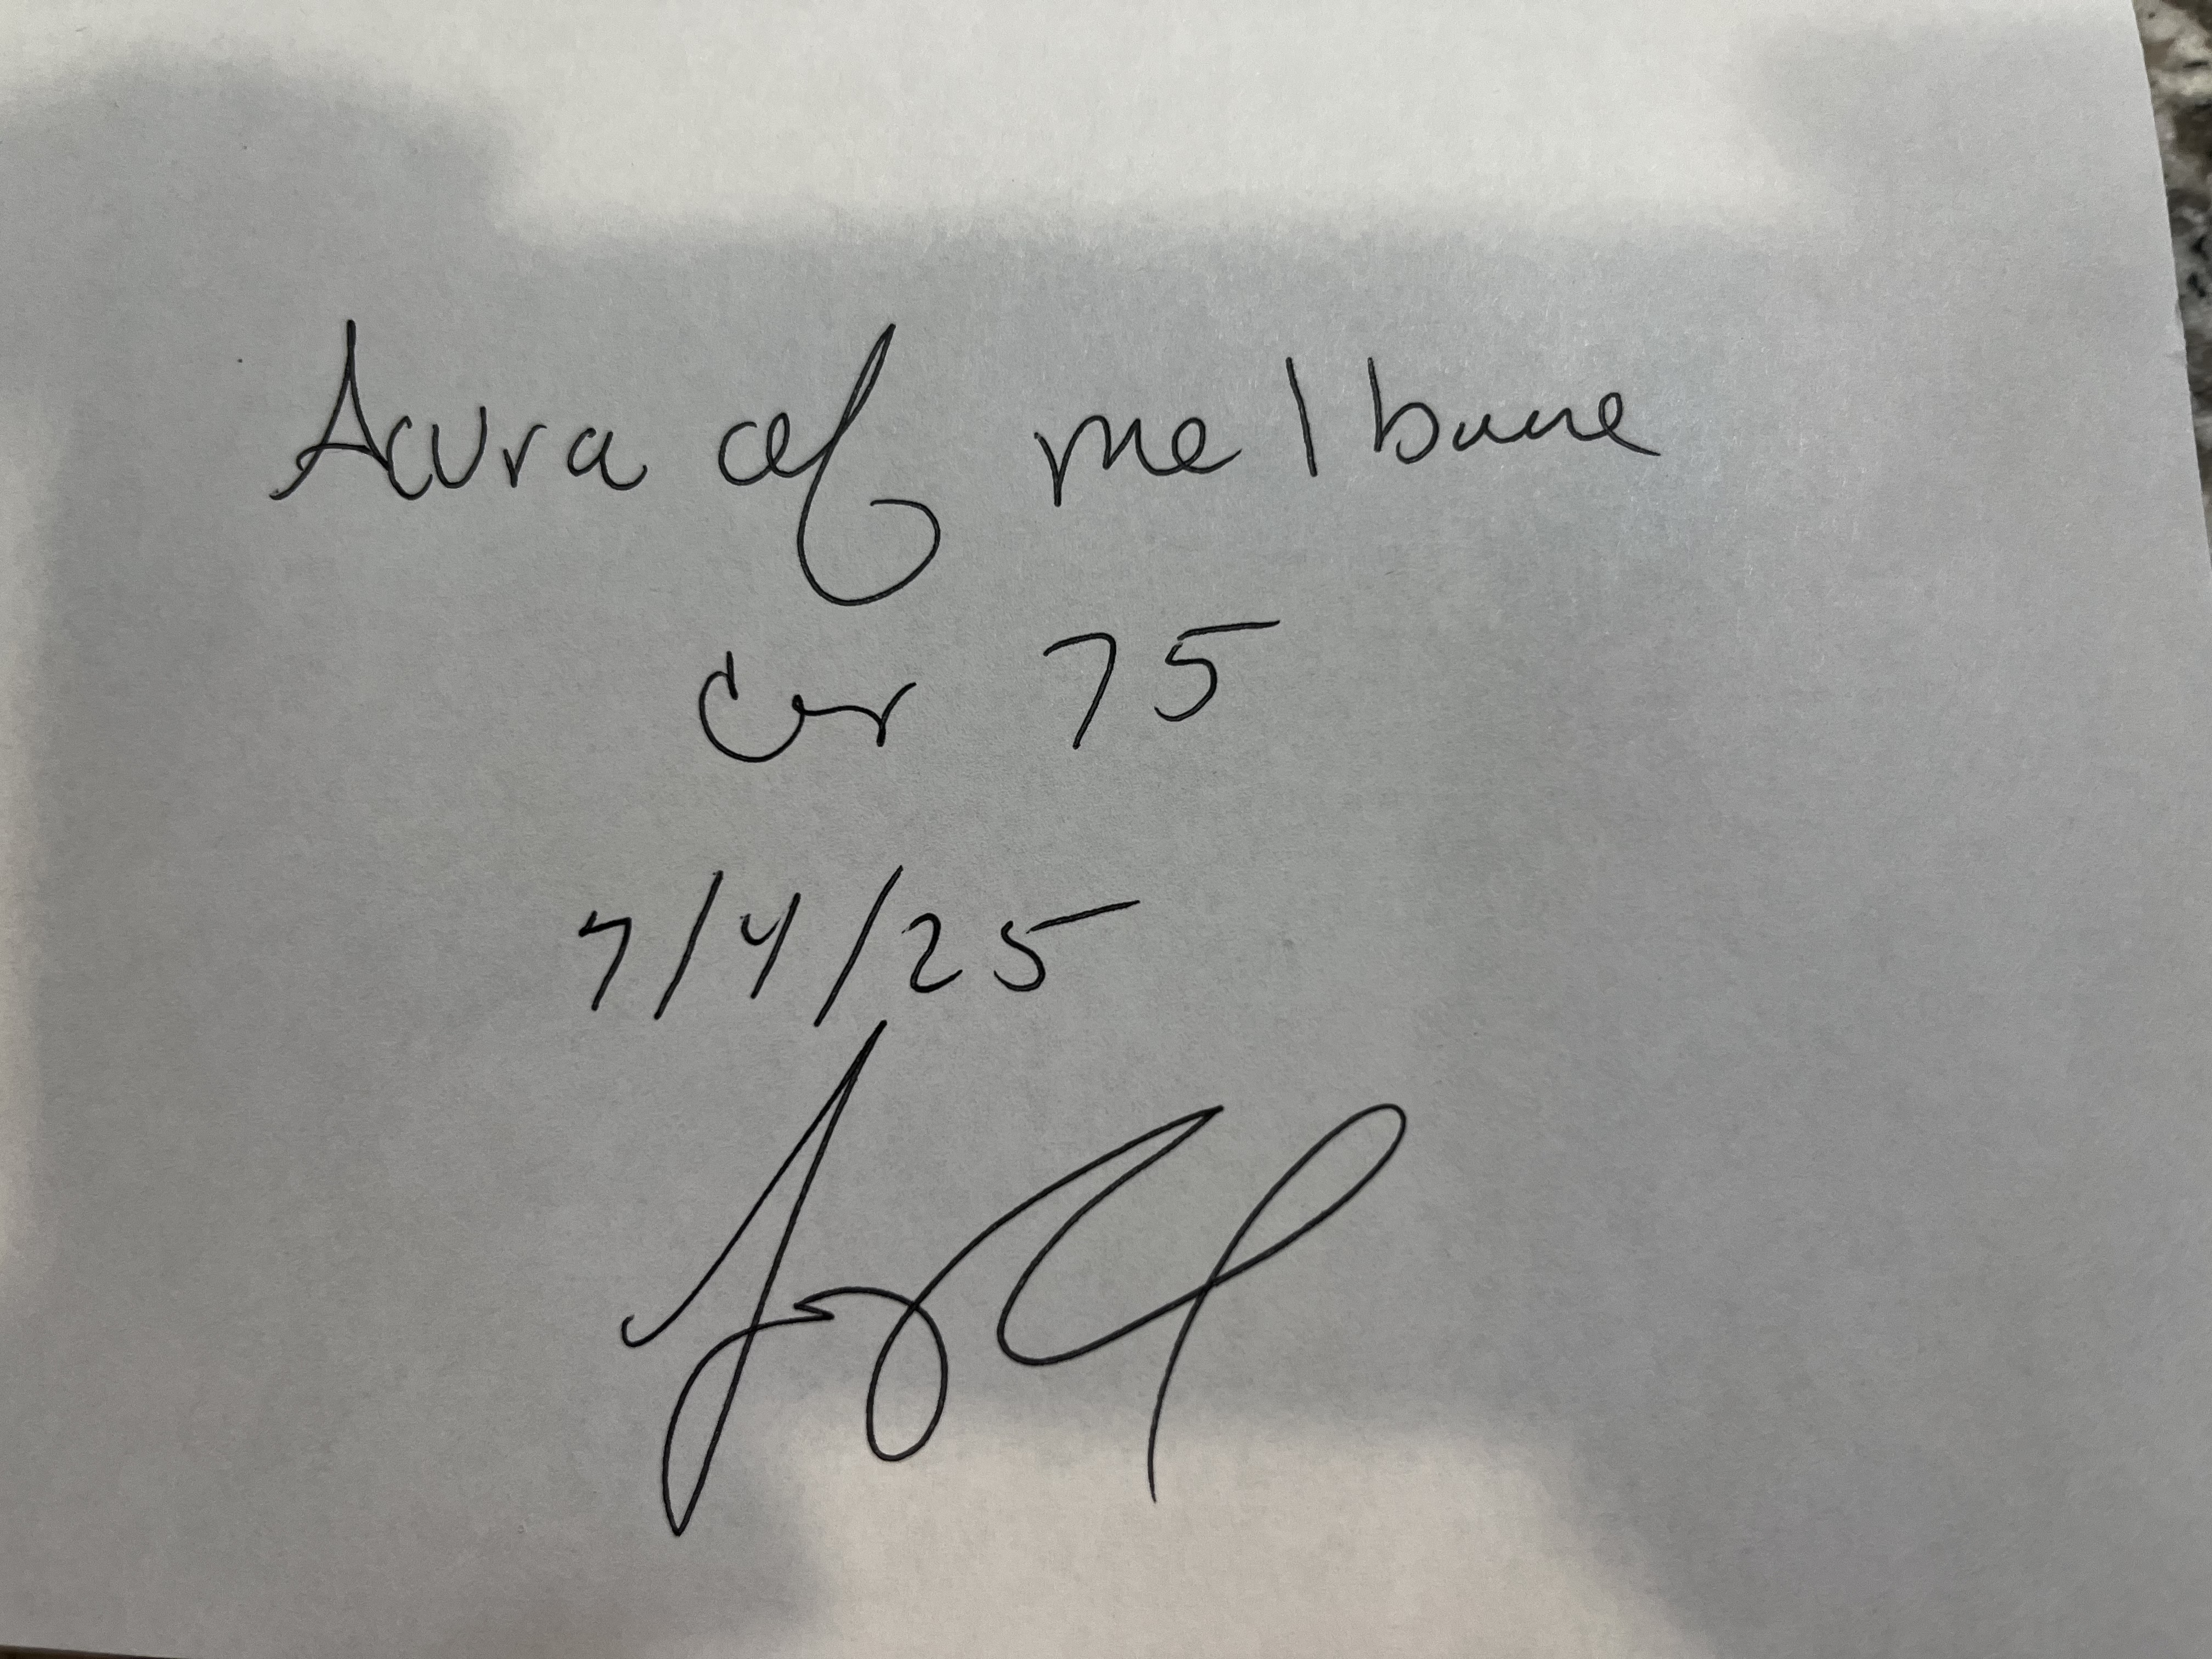 Acura of melbune
car 75
7/4/25